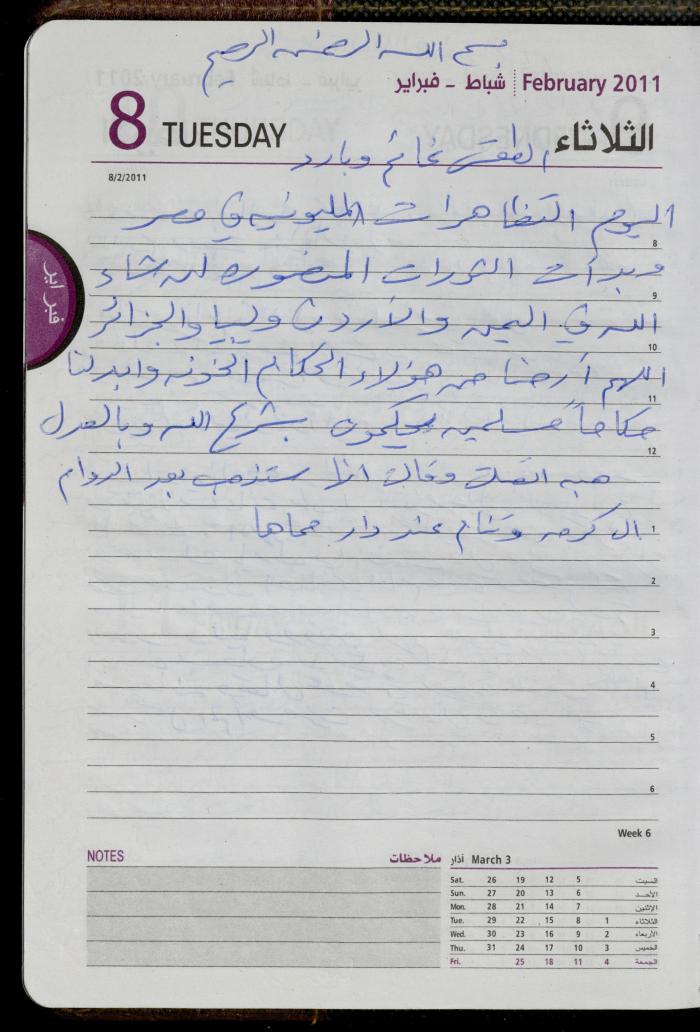 بسم الله الرحمن الرحيم
February 2011 شباط - فبراير
8 TUESDAY الثلاثاء
الطقس غائم وبارد
8/2/2011
اليوم التظاهرات المليونيه في مصر
8
وبدأت الثورات المنصوره ان شاء
9
الله في اليمن والأردن وليبيا والجزائر
10
اللهم أرحنا من هؤلاء الحكام الخونه وابدلنا
11
حكاماً مسلمين يحكمون بشرع الله وبالعدل
12
هبه اتصلت وقالت انها ستذهب بعد الدوام
1
ال كرمه وتنام عند دار حماها
2
3
4
5
6
فبراير
Week 6
NOTES ملاحظات
March 3 آذار
Sat. 26 19 12 5 السبت
Sun. 27 20 13 6 الأحد
Mon. 28 21 14 7 الإثنين
Tue. 29 22 15 8 1 الثلاثاء
Wed. 30 23 16 9 2 الأربعاء
Thu. 31 24 17 10 3 الخميس
Fri. 25 18 11 4 الجمعة